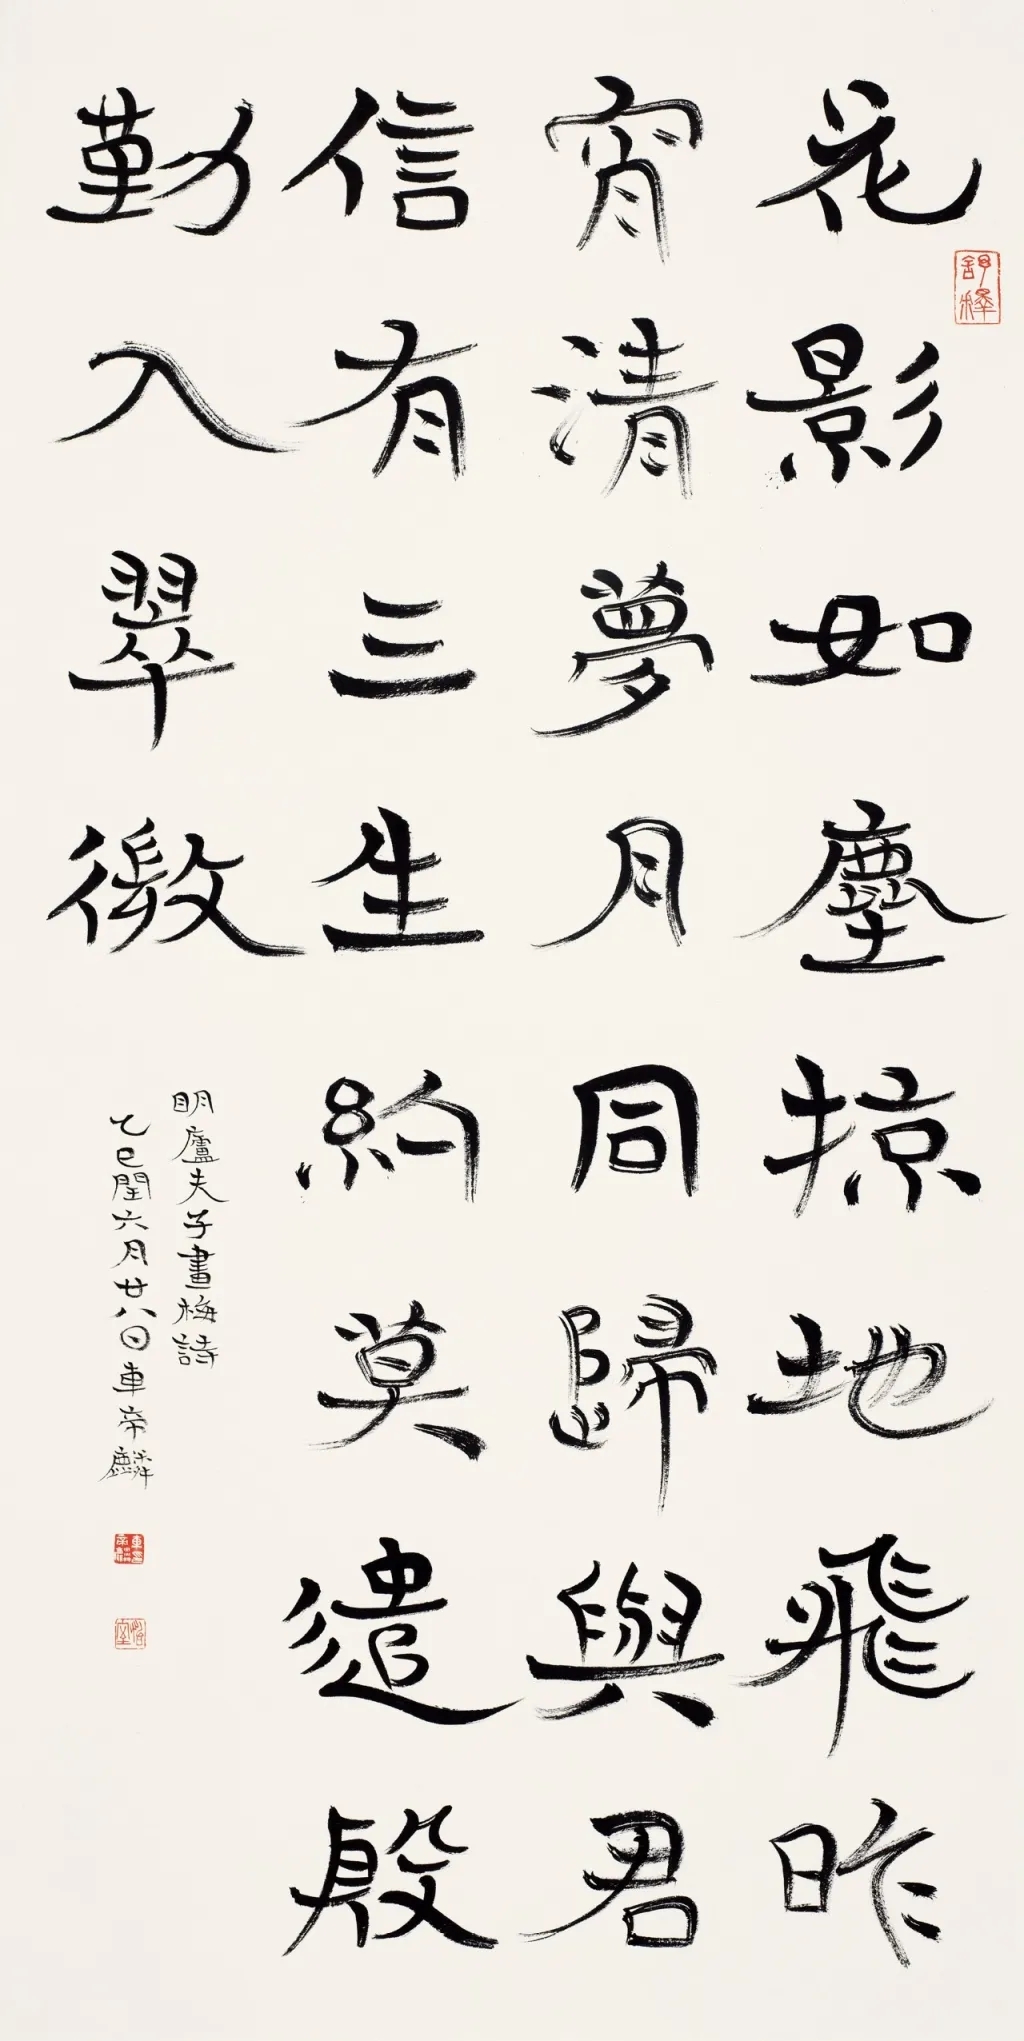 花影如塵掠地飛昨
宵清夢月同歸與君
信有三生約莫遣殷
勤入翠微
明廬夫子畫梅詩
乙巳閏六月廿八日車帝麟